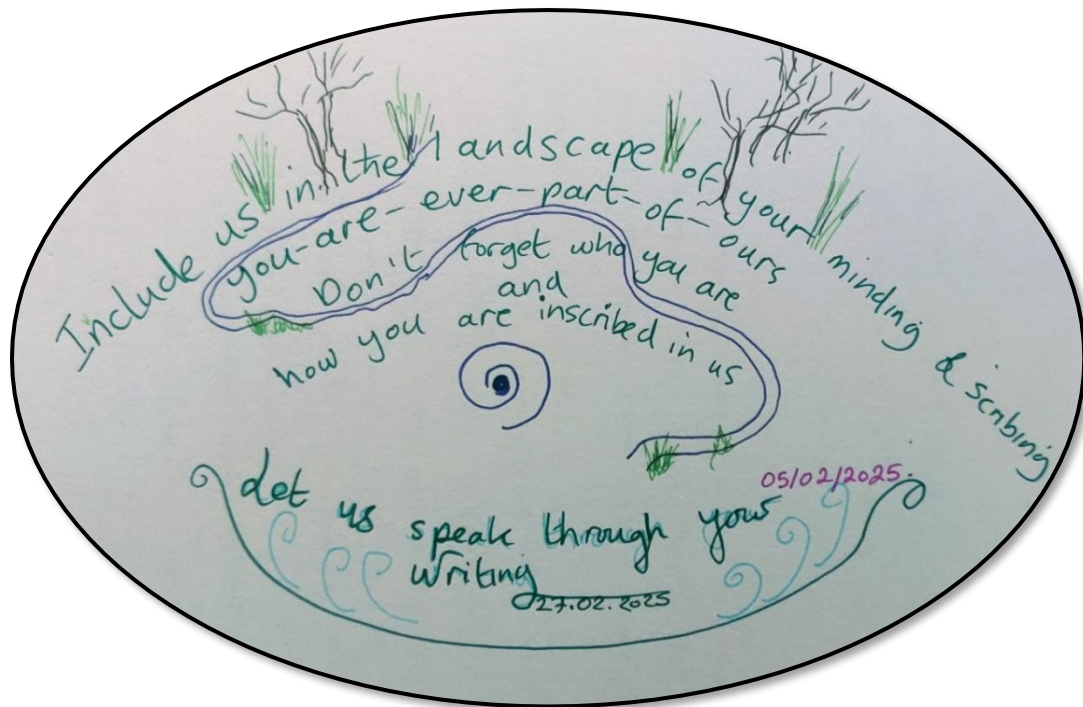 Include us in the landscape of your minding & scribing
you-are-ever-part-of-ours
Don't forget who you are
and
how you are inscribed in us
05/02/2025.
Let us speak through your
writing
27.02.2025